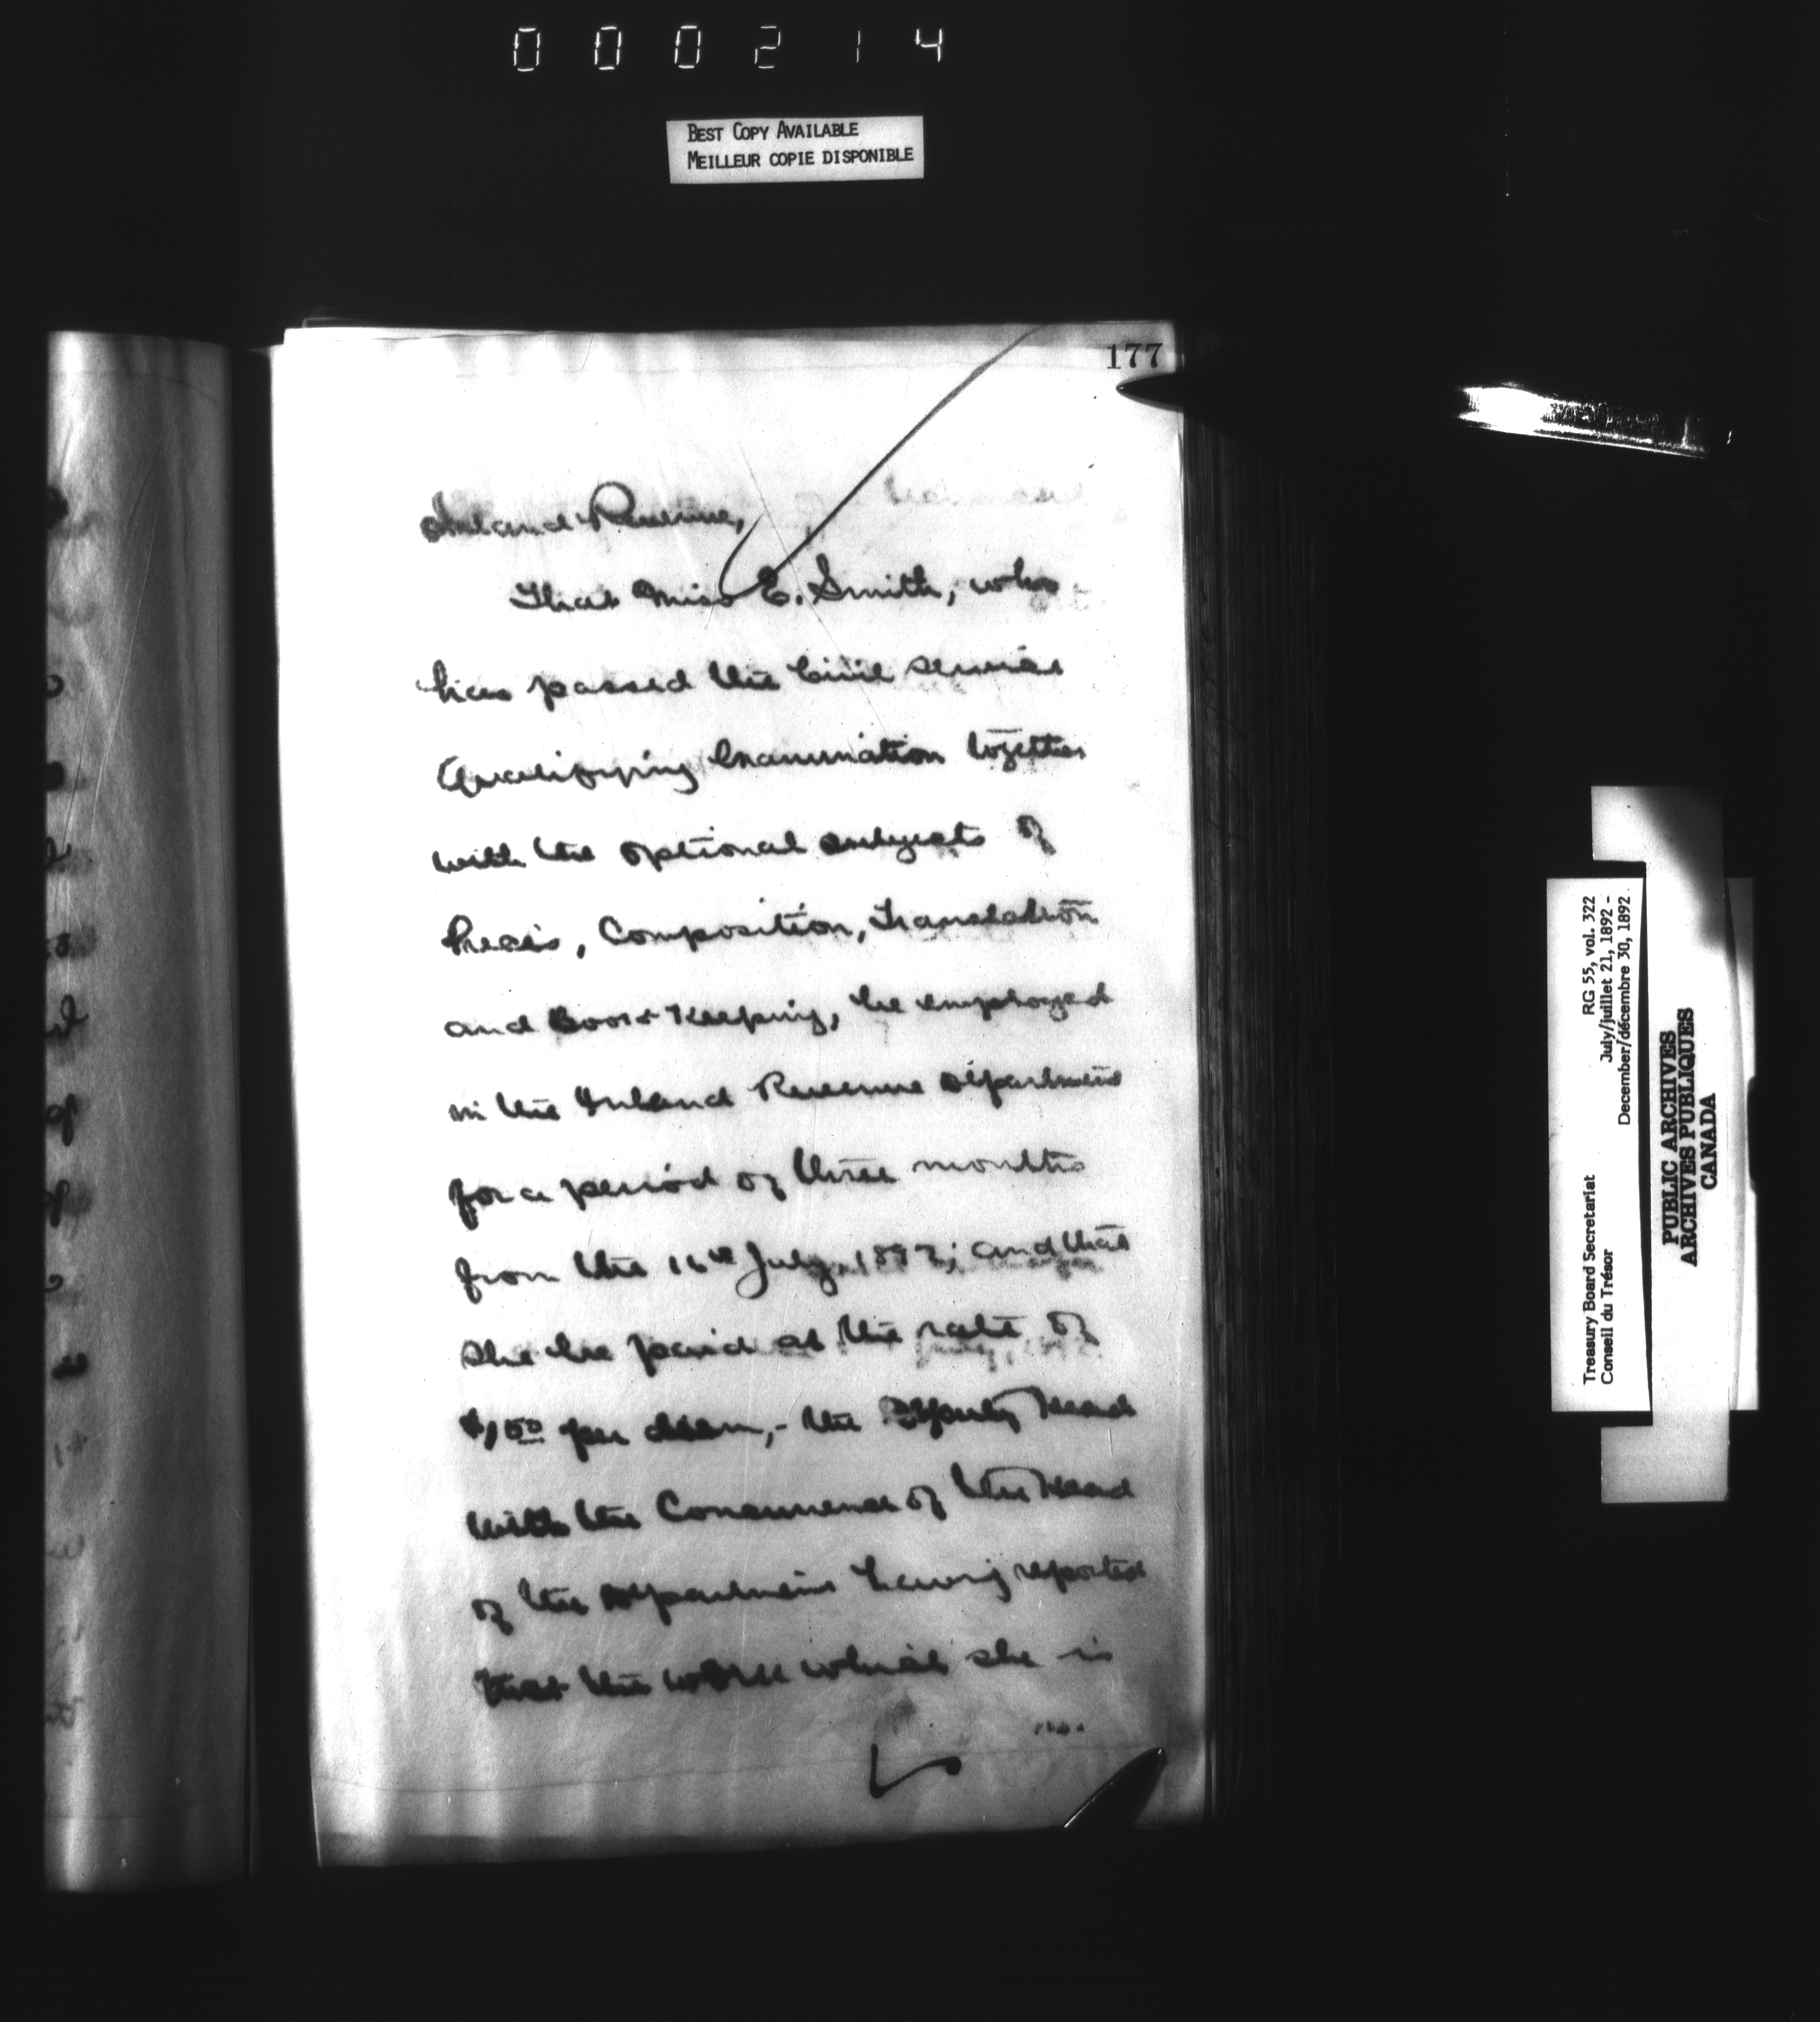 000214
BEST COPY AVAILABLE
MEILLEUR COPIE DISPONIBLE
177
Inland Revenue,
That Miss E. Smith, who
has passed the Civil Service
Qualifying Examination together
with the optional subjects of
Precis, Composition, Translation
and Book Keeping, be employed
in the Inland Revenue Department
for a period of three months
from the 16th July, 1892; and that
she be paid at the rate of
$1.50 per diem,- the Deputy Head
with the Concurrence of the Head
of the Department having reported
that the work which she is
Treasury Board Secretariat RG 55, vol. 322
Conseil du Trésor July/juillet 21, 1892 -
December/décembre 30, 1892
PUBLIC ARCHIVES
ARCHIVES PUBLIQUES
CANADA